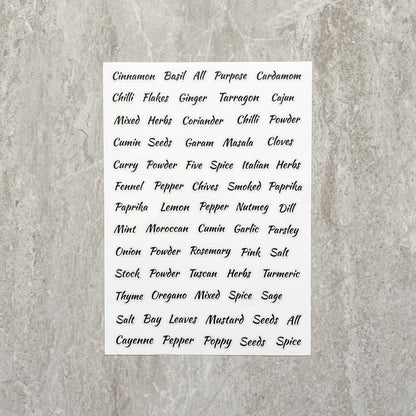 Cinnamon Basil All Purpose Cardamom
Chilli Flakes Ginger Tarragon Cajun
Mixed Herbs Coriander Chilli Powder
Cumin Seeds Garam Masala Cloves
Curry Powder Five Spice Italian Herbs
Fennel Pepper Chives Smoked Paprika
Paprika Lemon Pepper Nutmeg Dill
Mint Moroccan Cumin Garlic Parsley
Onion Powder Rosemary Pink Salt
Stock Powder Tuscan Herbs Turmeric
Thyme Oregano Mixed Spice Sage
Salt Bay Leaves Mustard Seeds All
Cayenne Pepper Poppy Seeds Spice